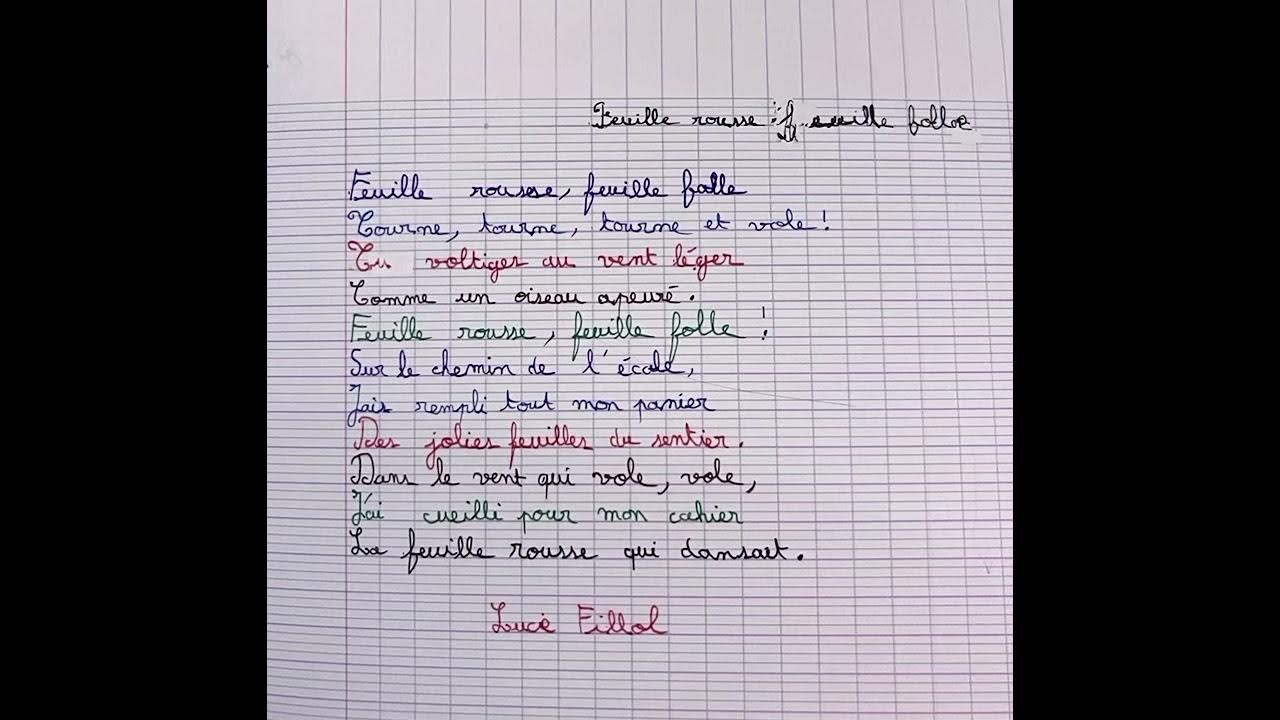 Feuille rousse, feuille folle
Feuille rousse, feuille folle
Tourne, tourne, tourne et vole !
Tu voltiges au vent léger
Comme un oiseau apeuré.
Feuille rousse, feuille folle !
Sur le chemin de l'école,
J'ais rempli tout mon panier
Des jolies feuilles du sentier.
Dans le vent qui vole, vole,
J'ai cueilli pour mon cahier
La feuille rousse qui dansait.
Luce Fillol